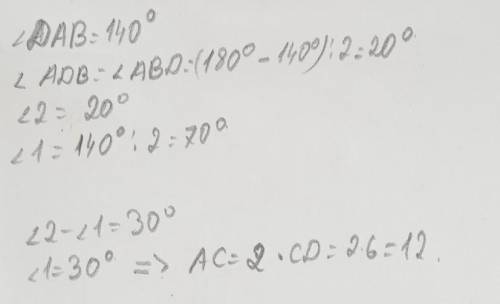 ∠DAB=140°
∠ADB=∠ABD=(180°-140°):2=20°.
∠2= 20°
∠1=140°:2=70°
∠2-∠1=30°
∠1=30° => AC=2·CD=2·6=12.